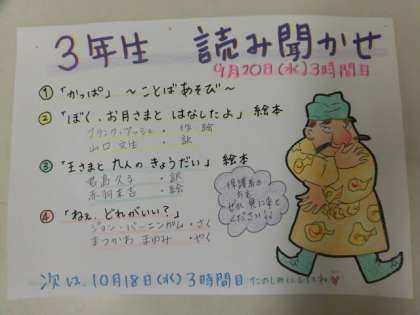 3年生 読み聞かせ
9月20日(水)3時間目
① 「かっぱ」 ～ことばあそび～
② 「ぼく、お月さまと はなしたよ」 絵本
フランク・アッシュ・ 作 絵
山口 文生 ・ 訳
③ 「王さまと 九人の きょうだい」 絵本
君島 久子 ・ 訳
赤羽 末吉 ・ 絵
④ 「ねぇ、どれがいい?」
ジョン・バーニンガム・さく
まつかわ まゆみ ・やく
保護者の
方も
ぜひ 見に来て
ください!!
次は、10月18日(水)3時間目 たのしみにしててね